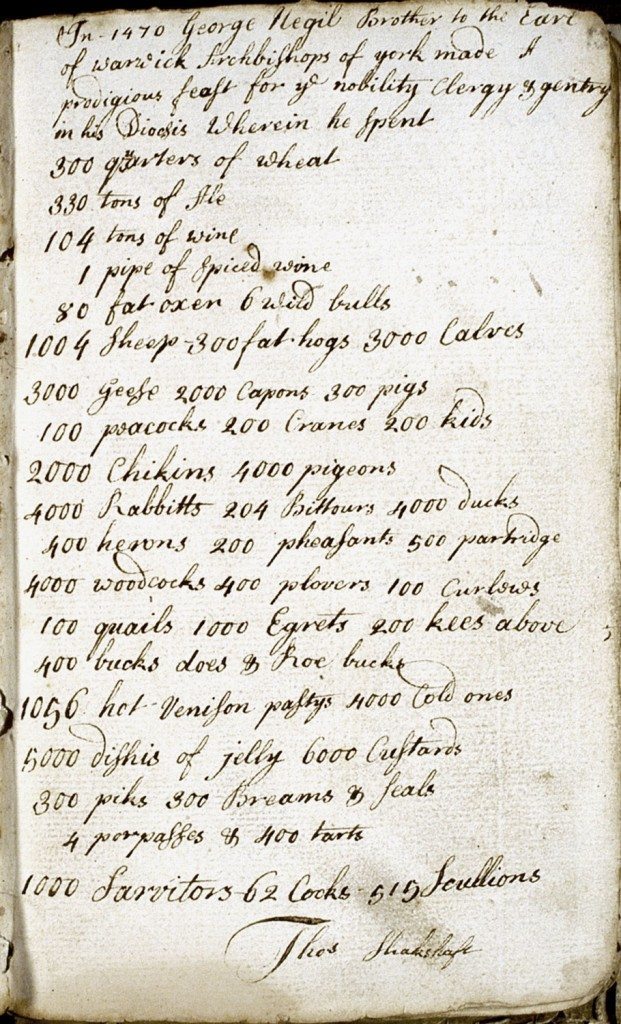 In 1470 George Negil Brother to the Earl
of warwick Archbishops of york made A
prodigious feast for ye nobility Clergy & gentry
in his Diocsis Wherein he spent
300 quarters of wheat
330 tons of Ale
104 tons of wine
1 pipe of spiced wine
80 fat oxen 6 wild bulls
1004 Sheep 300 fat hogs 3000 Calves
3000 Geese 2000 Capons 300 pigs
100 peacocks 200 Cranes 200 kids
2000 Chikins 4000 pigeons
4000 Rabbitts 204 Bittours 4000 ducks
400 herons 200 pheasants 500 partridge
4000 woodcocks 400 plovers 100 Curlews
100 quails 1000 Egrets 200 kees above
400 bucks does & Roe bucks
1056 hot Venison pastys 4000 Cold ones
5000 dishis of jelly 6000 Custards
300 piks 300 Breams 8 seals
4 porpasses & 400 tarts
1000 Sarvitors 62 Cocks 515 Scullions
Thos Shakshaft